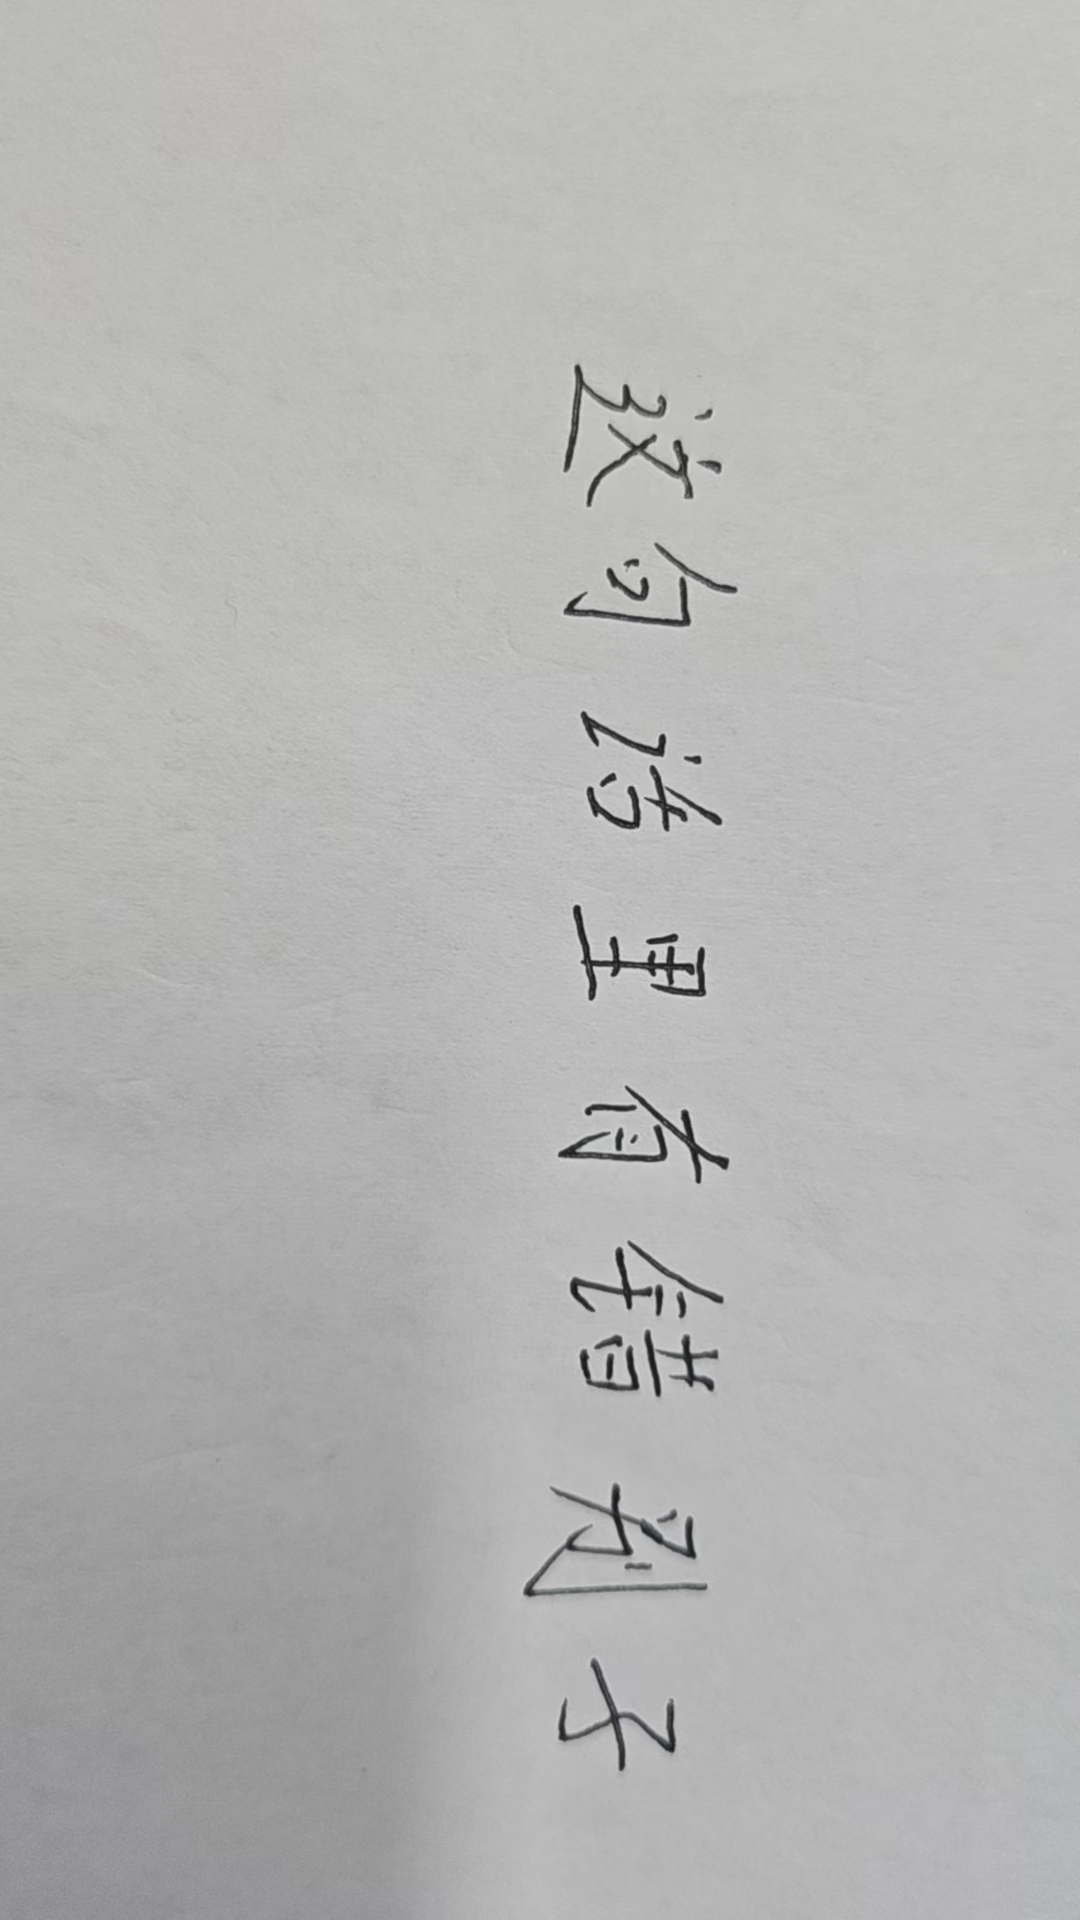 这句话里有错别子